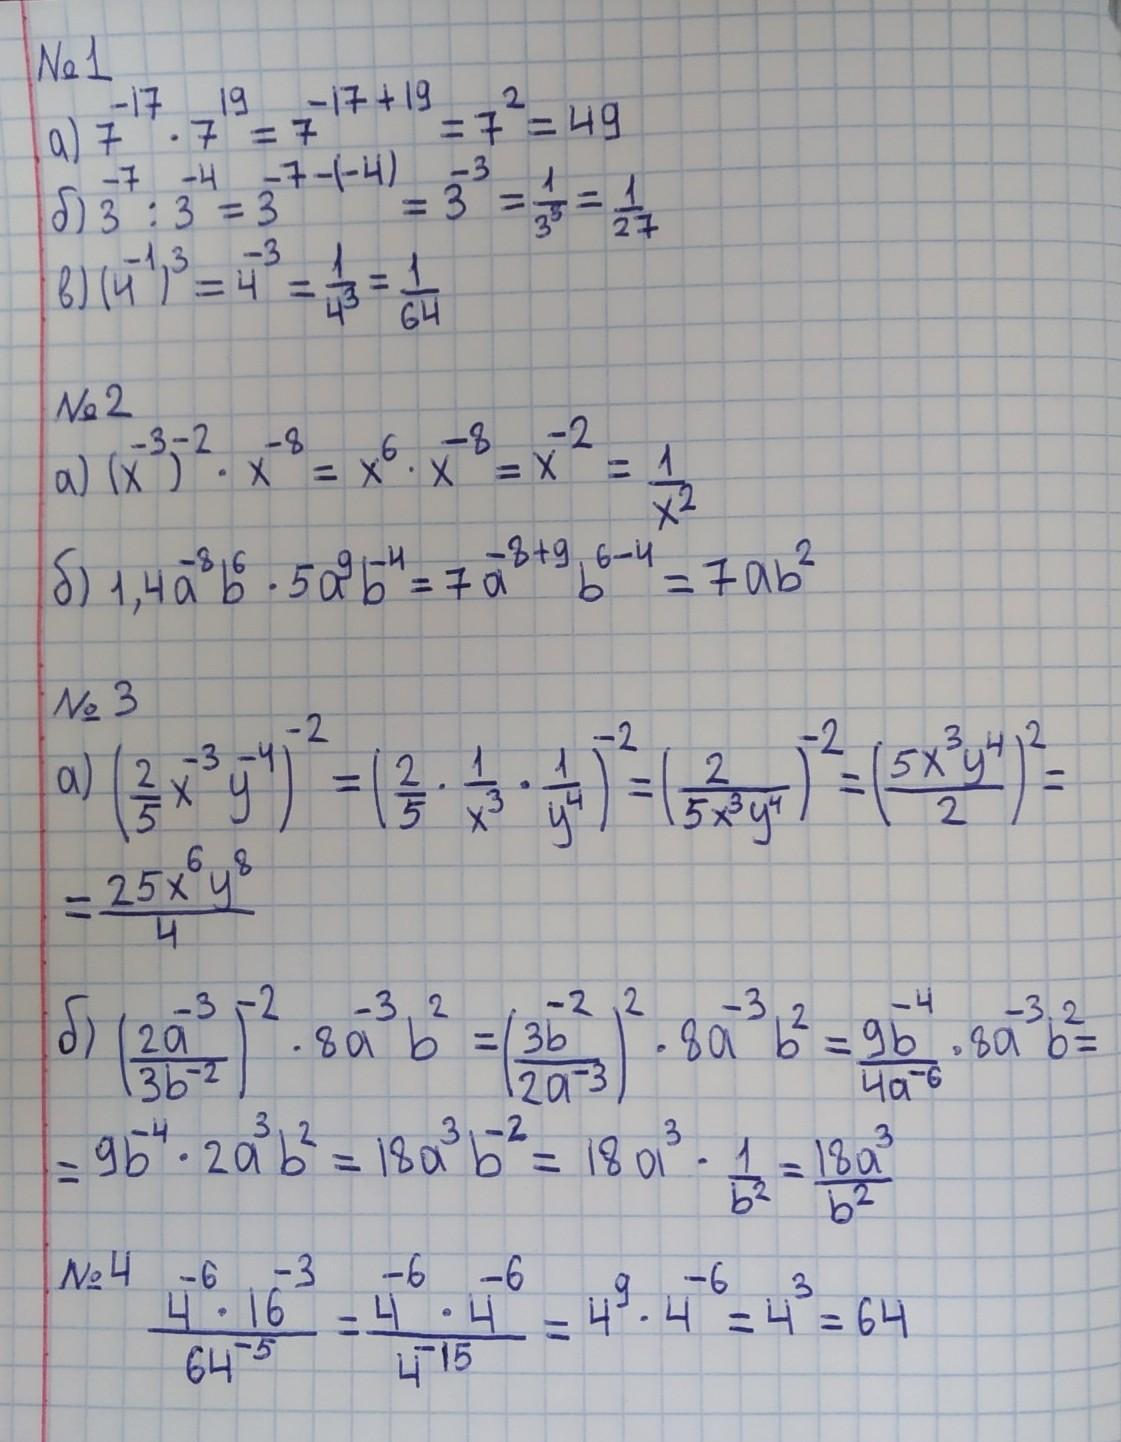 №1
а) 7⁻¹⁷ · 7¹⁹ = 7⁻¹⁷⁺¹⁹ = 7² = 49
б) 3⁻⁷ : 3⁻⁴ = 3⁻⁷⁻⁽⁻⁴⁾ = 3⁻³ = 1/3³ = 1/27
в) (4⁻¹)³ = 4⁻³ = 1/4³ = 1/64
№2
а) (x⁻³)⁻² · x⁻⁸ = x⁶ · x⁻⁸ = x⁻² = 1/x²
б) 1,4a⁻⁸b⁶ · 5a⁹b⁻⁴ = 7a⁻⁸⁺⁹b⁶⁻⁴ = 7ab²
№3
а) (2/5 x⁻³y⁻⁴)⁻² = (2/5 · 1/x³ · 1/y⁴)⁻² = (2/5x³y⁴)⁻² = (5x³y⁴/2)² =
= 25x⁶y⁸/4
б) (2a⁻³/3b⁻²)⁻² · 8a⁻³b² = (3b⁻²/2a⁻³)² · 8a⁻³b² = 9b⁻⁴/4a⁻⁶ · 8a⁻³b² =
= 9b⁻⁴ · 2a³b² = 18a³b⁻² = 18a³ · 1/b² = 18a³/b²
№4 4⁻⁶ · 16⁻³/64⁻⁵ = 4⁻⁶ · 4⁻⁶/4⁻¹⁵ = 4⁹ · 4⁻⁶ = 4³ = 64